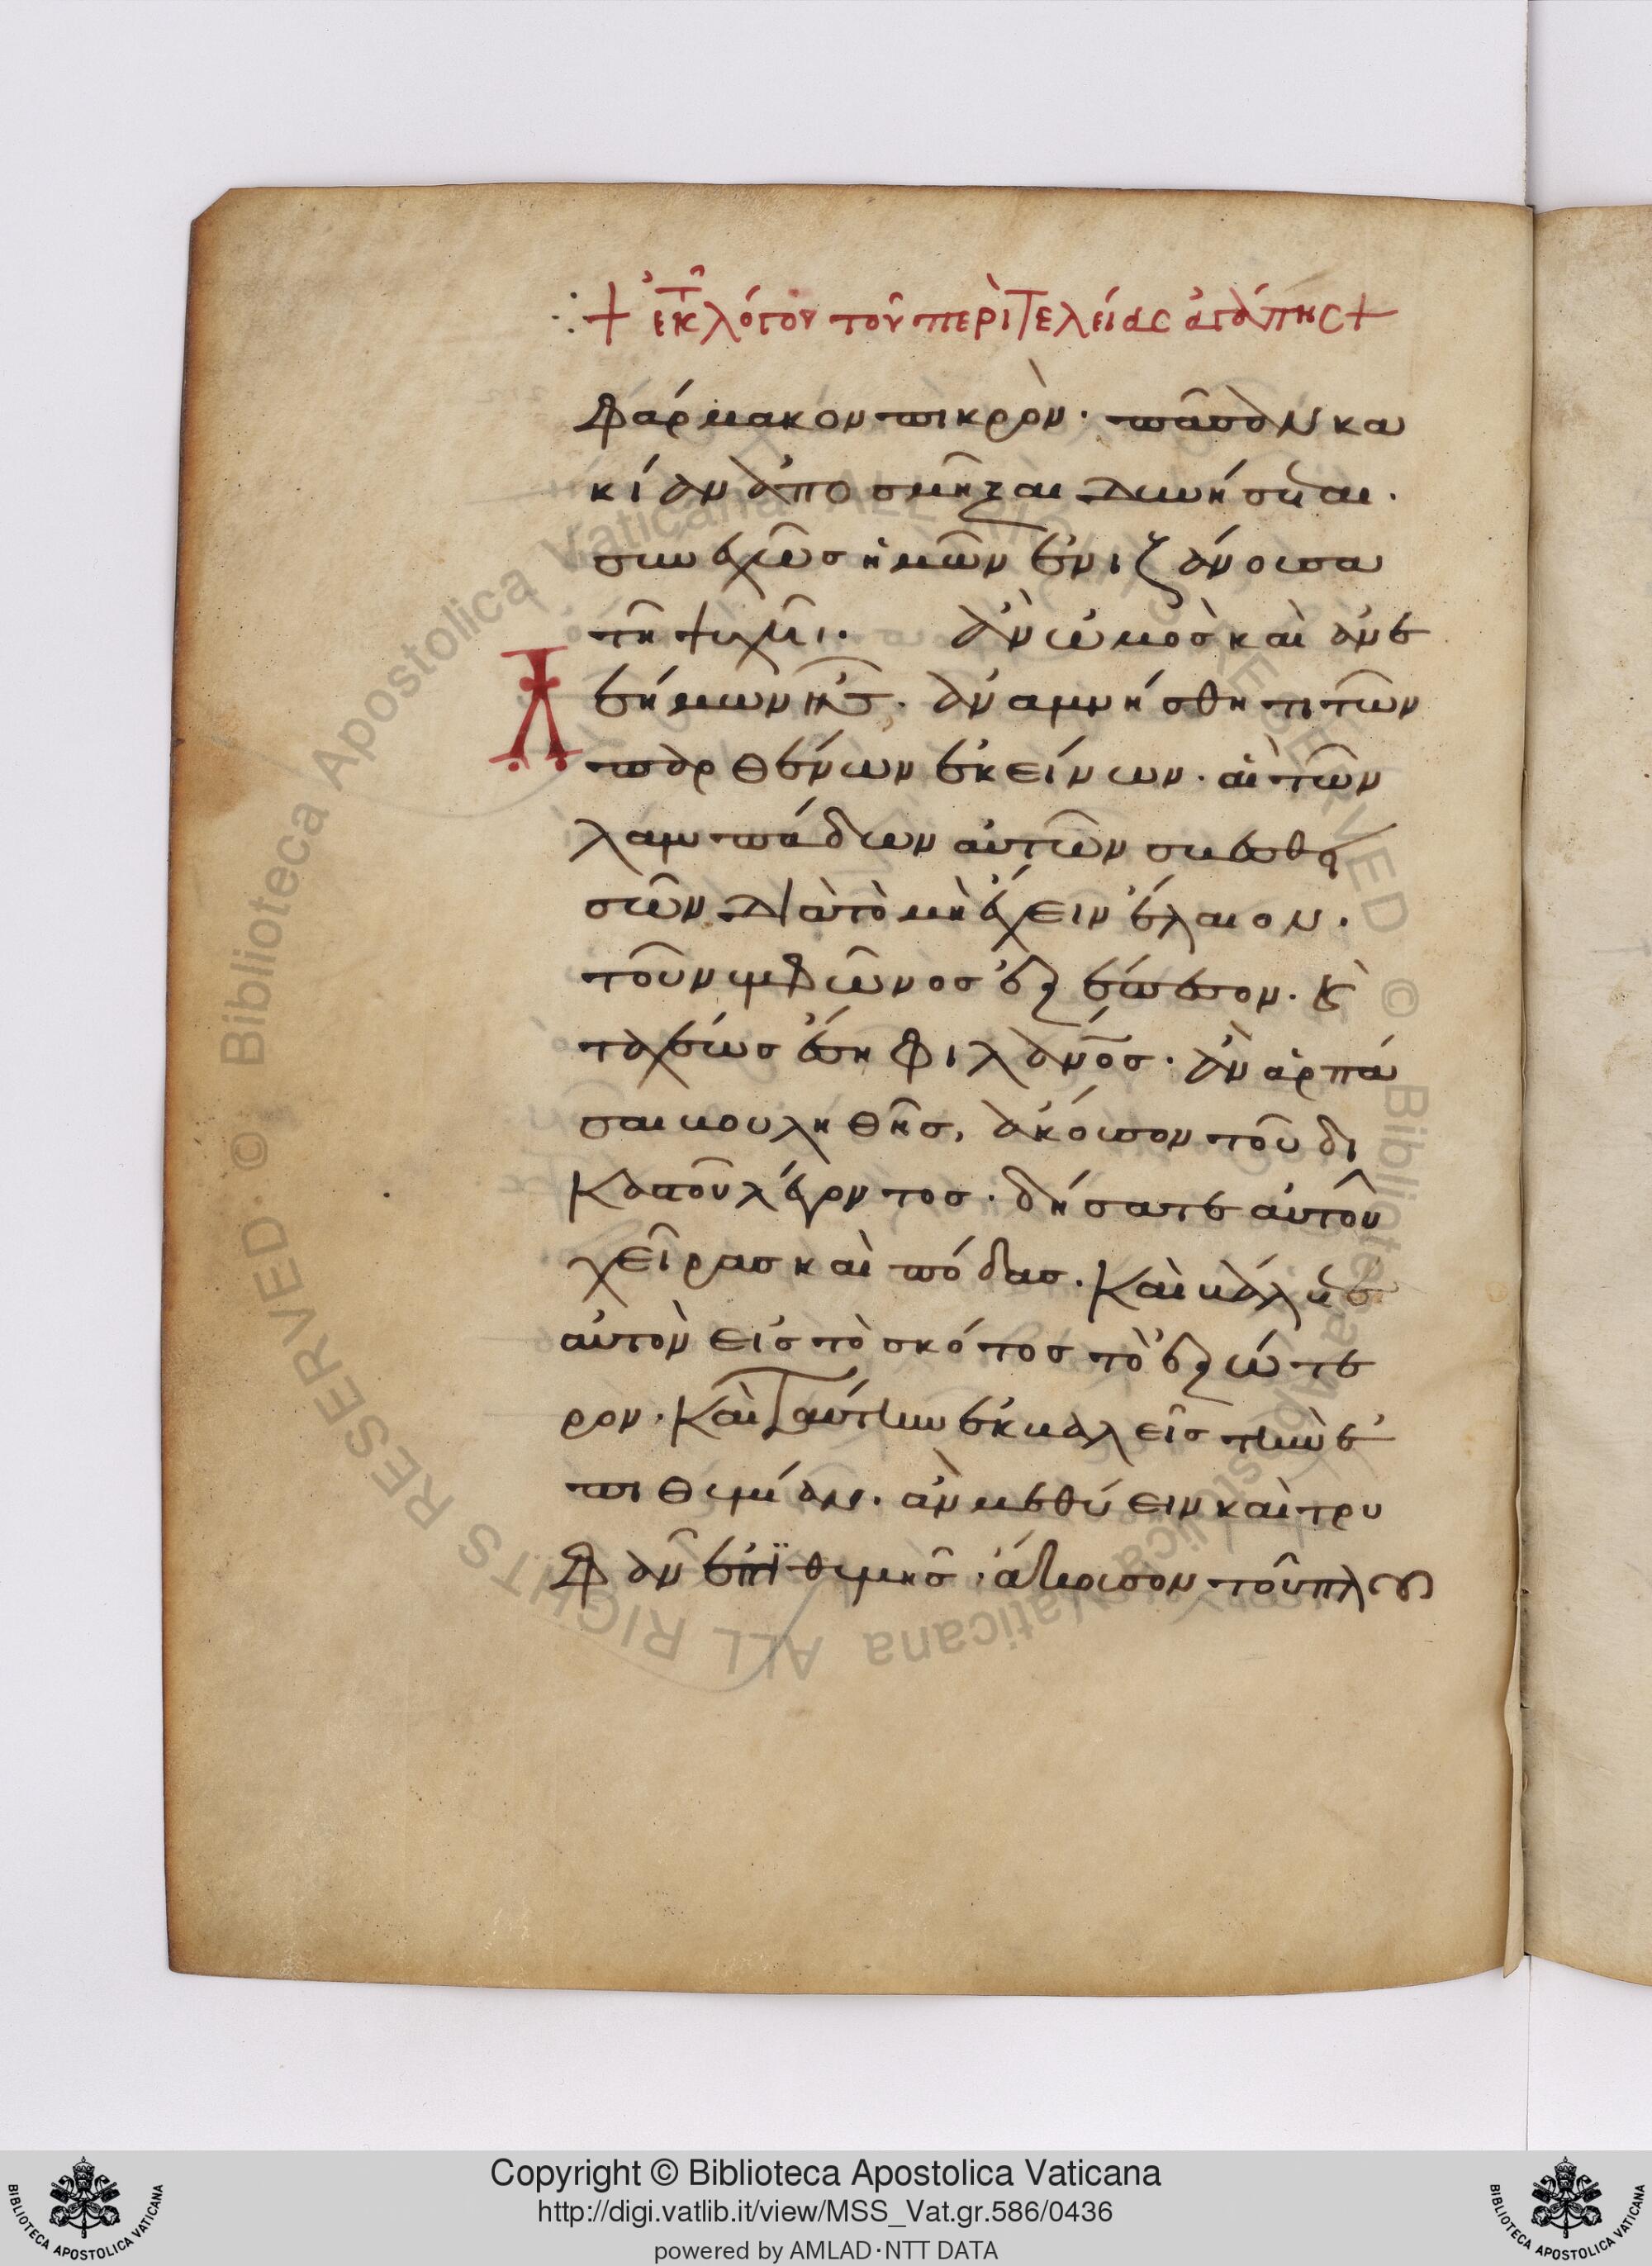 + ἐκ τ λόγου τοῦ περὶ τελείας ἀγάπης +
φάρμακον πικρὸν· πᾶσαν κα
κίαν ἀποσμῆξαι δυνήσεται.
συνεχῶς ἡμῶν ἐνιζάνουσα
τῆ ψυχῆι. ἀν ὠμὸσ καὶ ἀνε
λεήμων ἦσ. ἀναμνήσθητι τῶν
παρθένων ἐκείνων. αἳ τῶν
λαμπάδων αὐτῶν σβεσθη
σῶν διὰ τὸ μὴ ἔχειν ἔλαιον.
τοῦ νυμφῶνοσ ἐξέπεσον. κ
ταχέωσ ἔση φιλανοσ. ἀν ἁρπά
σαι βουληθῆσ, ἀκουσον τοῦ δι
καστοῦ λέγοντοσ. δήσατε αὐτοῦ
χεῖρασ καὶ πόδασ. καὶ βάλετε
αὐτὸν εἰσ τὸ σκότοσ τὸ ἐξώτε
ρον. καὶ ταύτην ἐκβαλεῖσ τὴν ἐ
πιθυμίαν. ἀν μεθύειν καὶ τρυ
φᾶν ἐπϊθυμῆσ. ἄκουσον τοῦ πλου
Copyright © Biblioteca Apostolica Vaticana
http://digi.vatlib.it/view/MSS_Vat.gr.586/0436
powered by AMLAD·NTT DATA
BIBLIOTECA APOSTOLICA VATICANA
BIBLIOTECA APOSTOLICA VATICANA
© Biblioteca Apostolica Vaticana ALL RIGHTS RESERVED · © Biblioteca Apostolica Vaticana ALL RIGHTS RESERVED ·